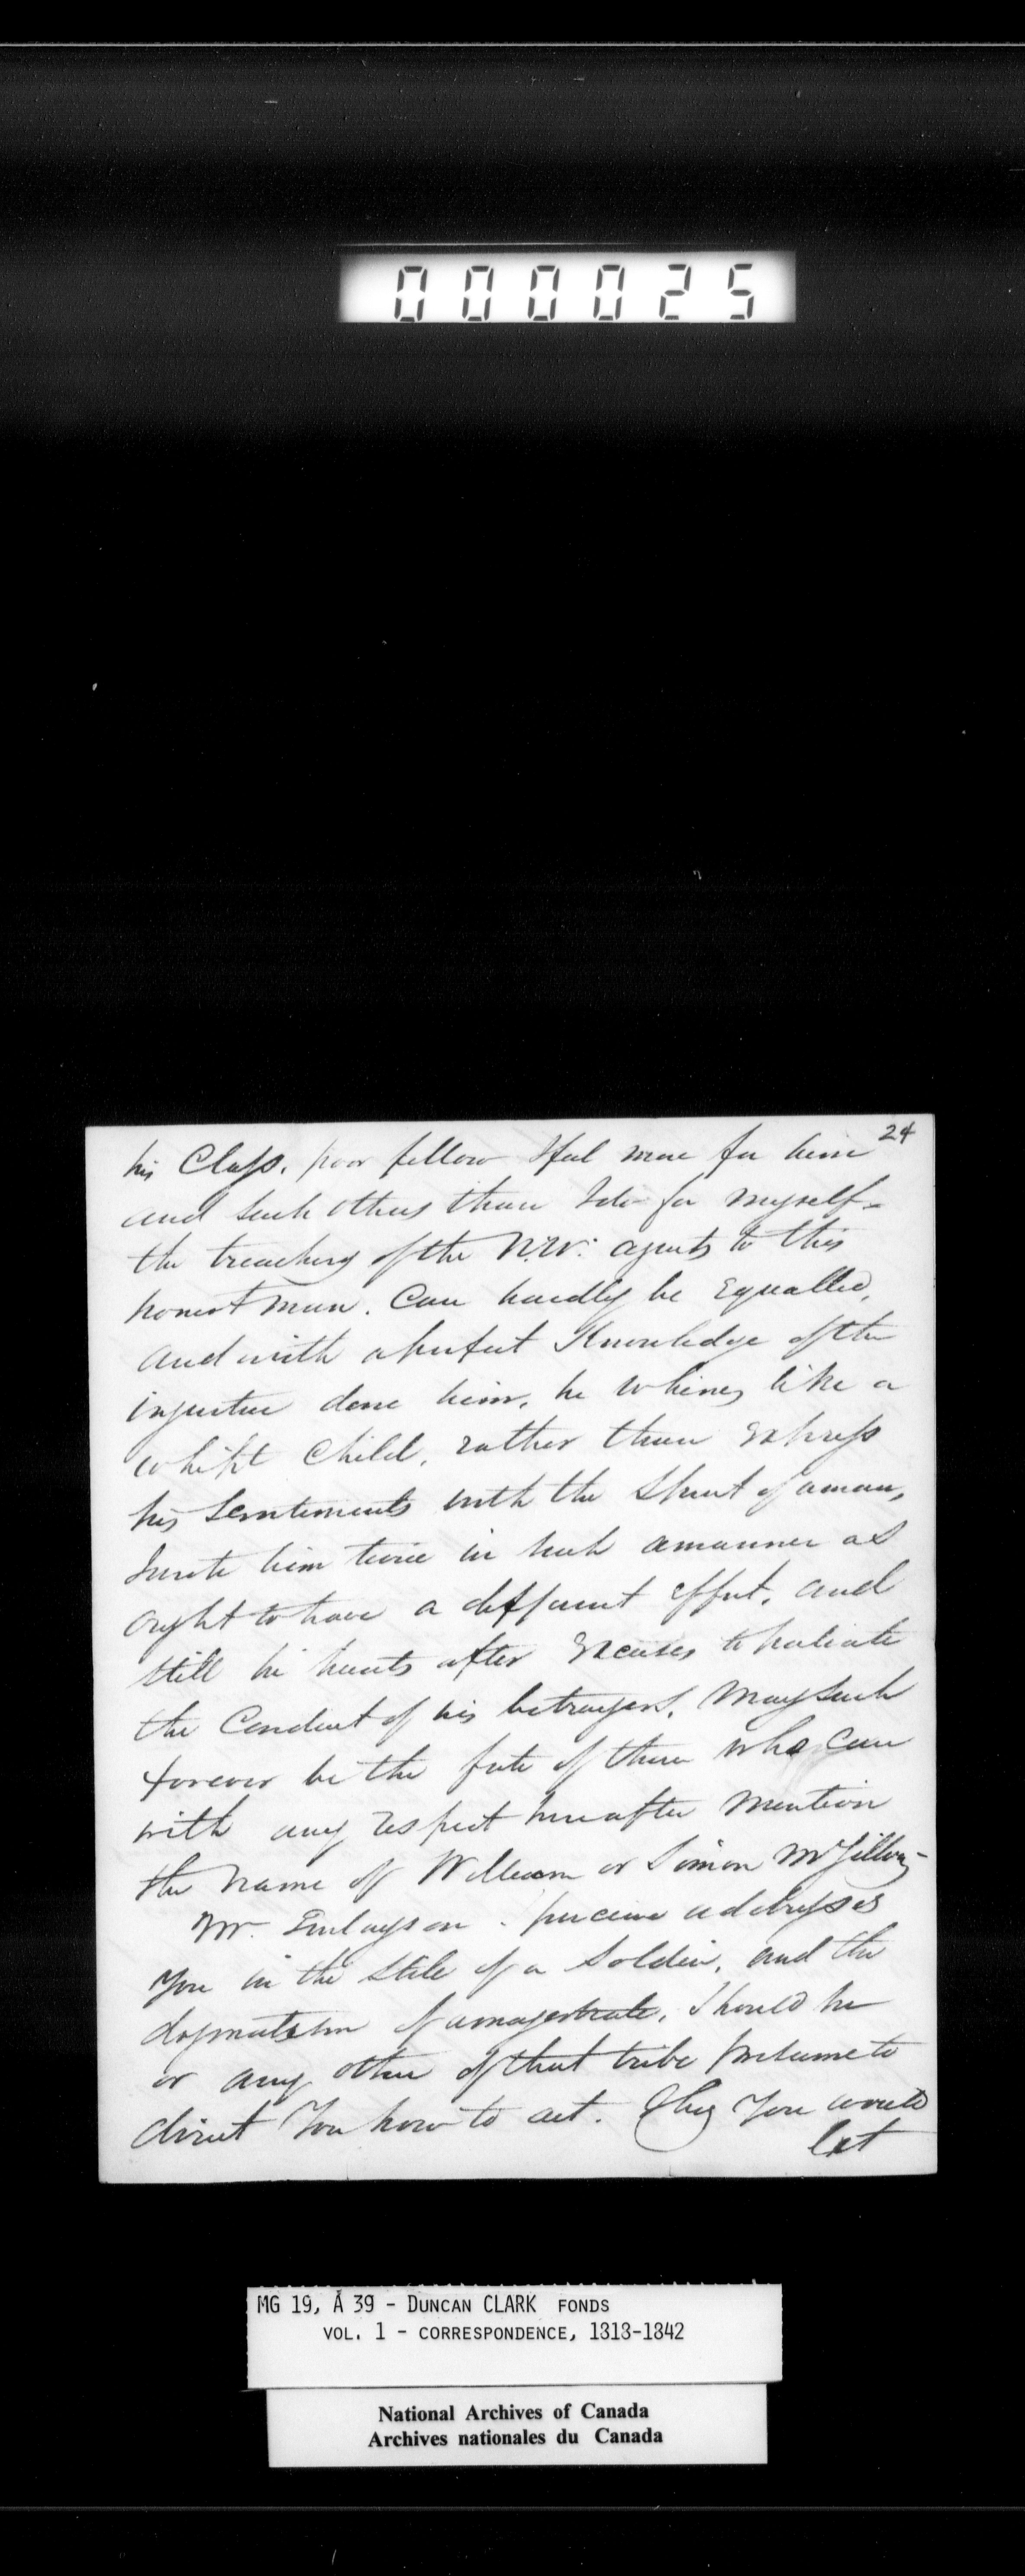 000025
24
his Class. poor fellow I feel more for him
and such others than I do for myself -
the treachery of the N.W. agents to this
honest man. Can hardly be Equalled,
and with a perfect Knowledge of the
injustice done him, he whines like a
whipt Child, rather than Express
his Sentiments with the Spirit of a man,
I wrote him twice in such a manner as
ought to have a different effect, and
still he hunts after Excuses to paliate
the Conduct of his betrayers. May such
forever be the fate of those who can
with any respect hereafter mention
the name of William or Simon McGillivray -
Mr. Finlayson I perceive addresses
you in the Stile of a Soldier, and the
of a magistrate, Should he
or any other of that tribe presume to
direct You how to act. Obey You would
let
MG 19, A 39 - DUNCAN CLARK FONDS
VOL. 1 - CORRESPONDENCE, 1813-1842
National Archives of Canada
Archives nationales du Canada